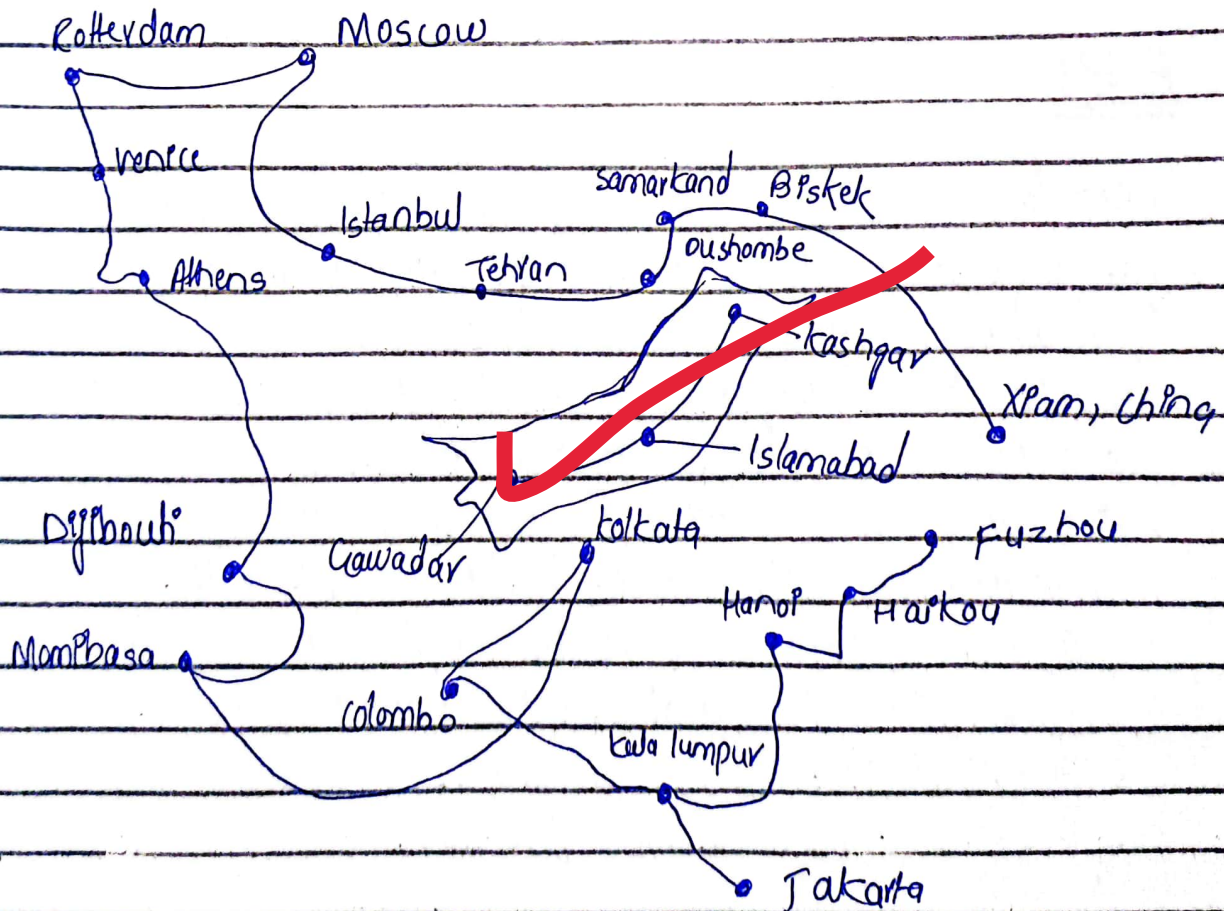 Rotterdam
Moscow
Venice
Samarkand
Biskek
Istanbul
Oushombe
Tehran
Athens
Kashgar
Xiam, China
Islamabad
Djibouti
Gawadar
Kolkata
Fuzhou
Hanoi
Haikou
Mombasa
Colombo
kula lumpur
Jakarta